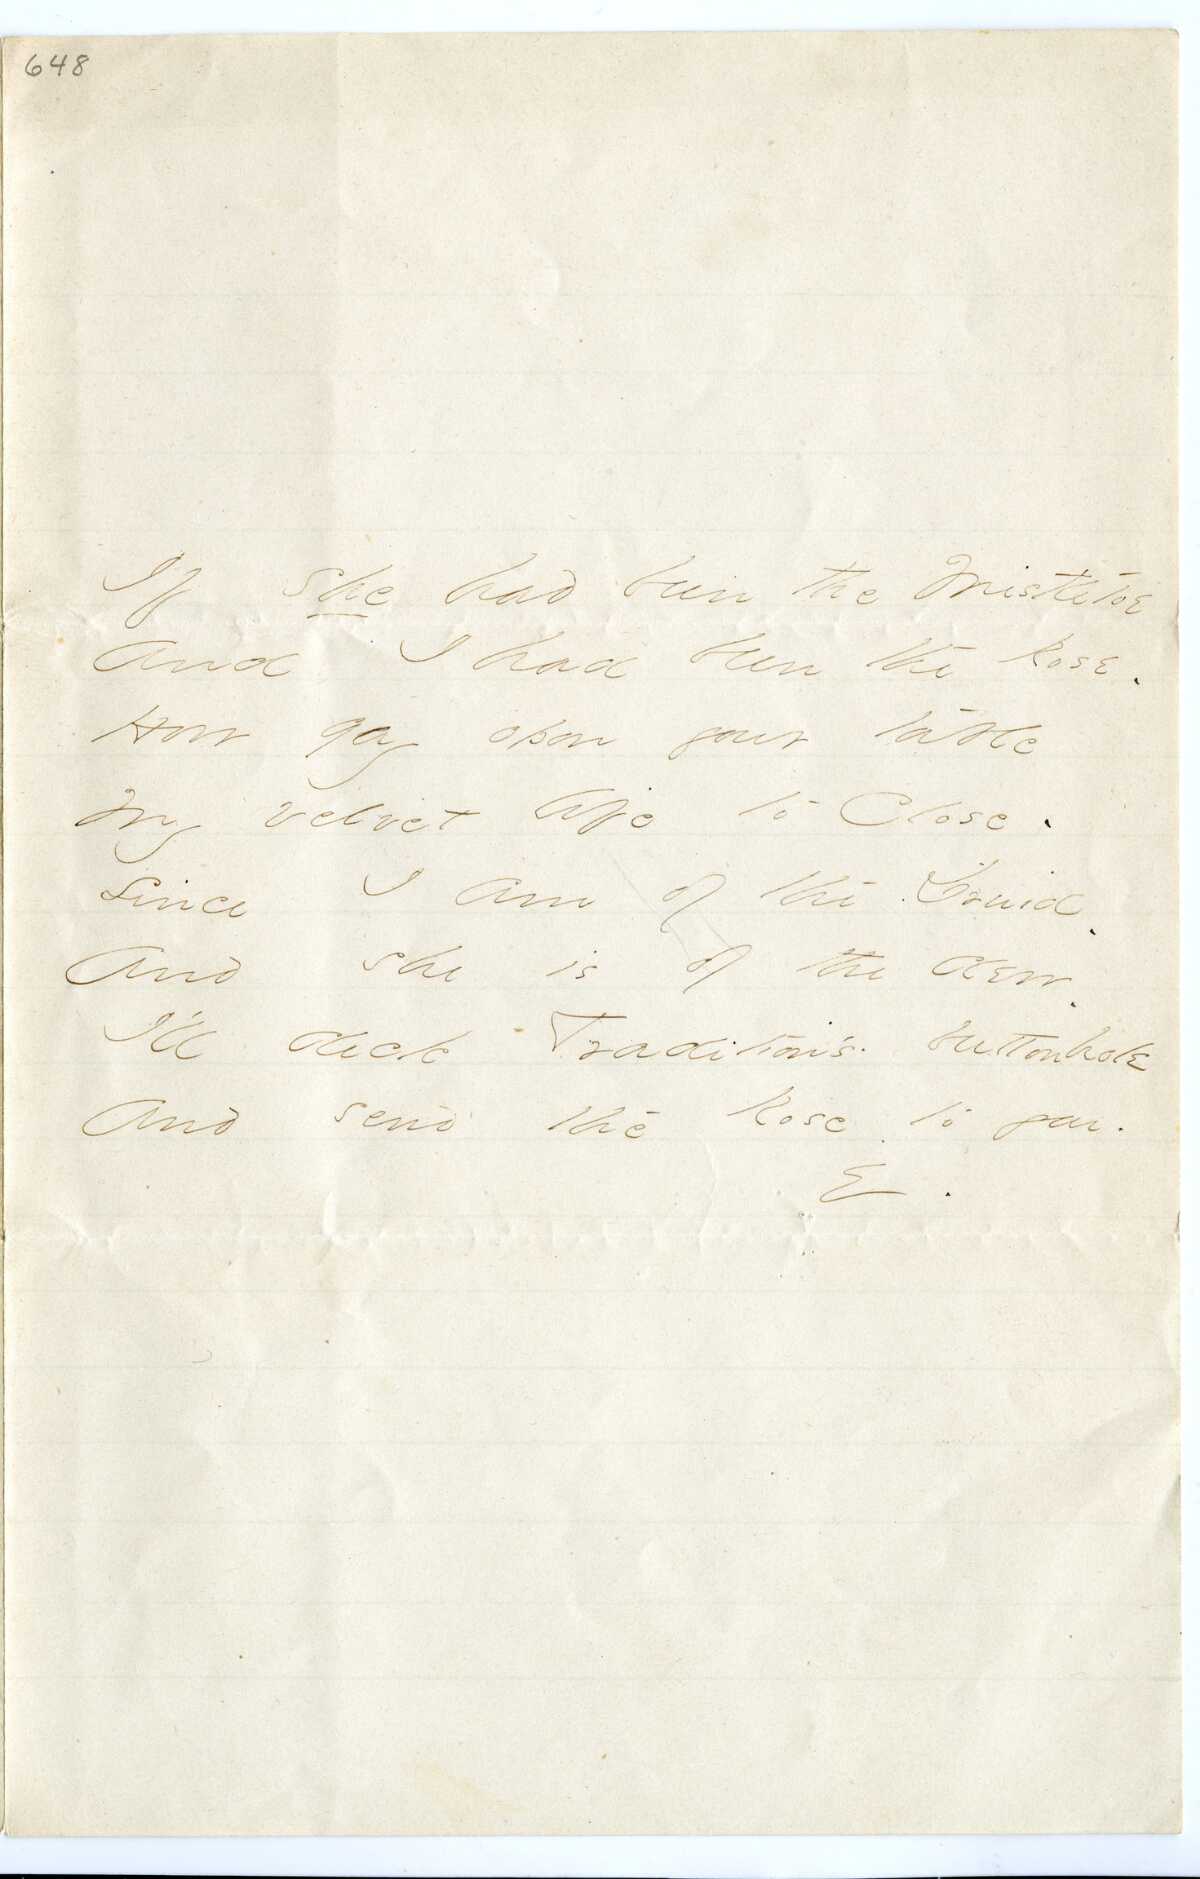 648
If she had been the Mistletoe
And I had been the Rose.
How gay upon your table
My velvet life to Close.
Since I am of the Druid.
And she is of the dew.
I'll deck Tradition's buttonhole
And send the Rose to you.
E.